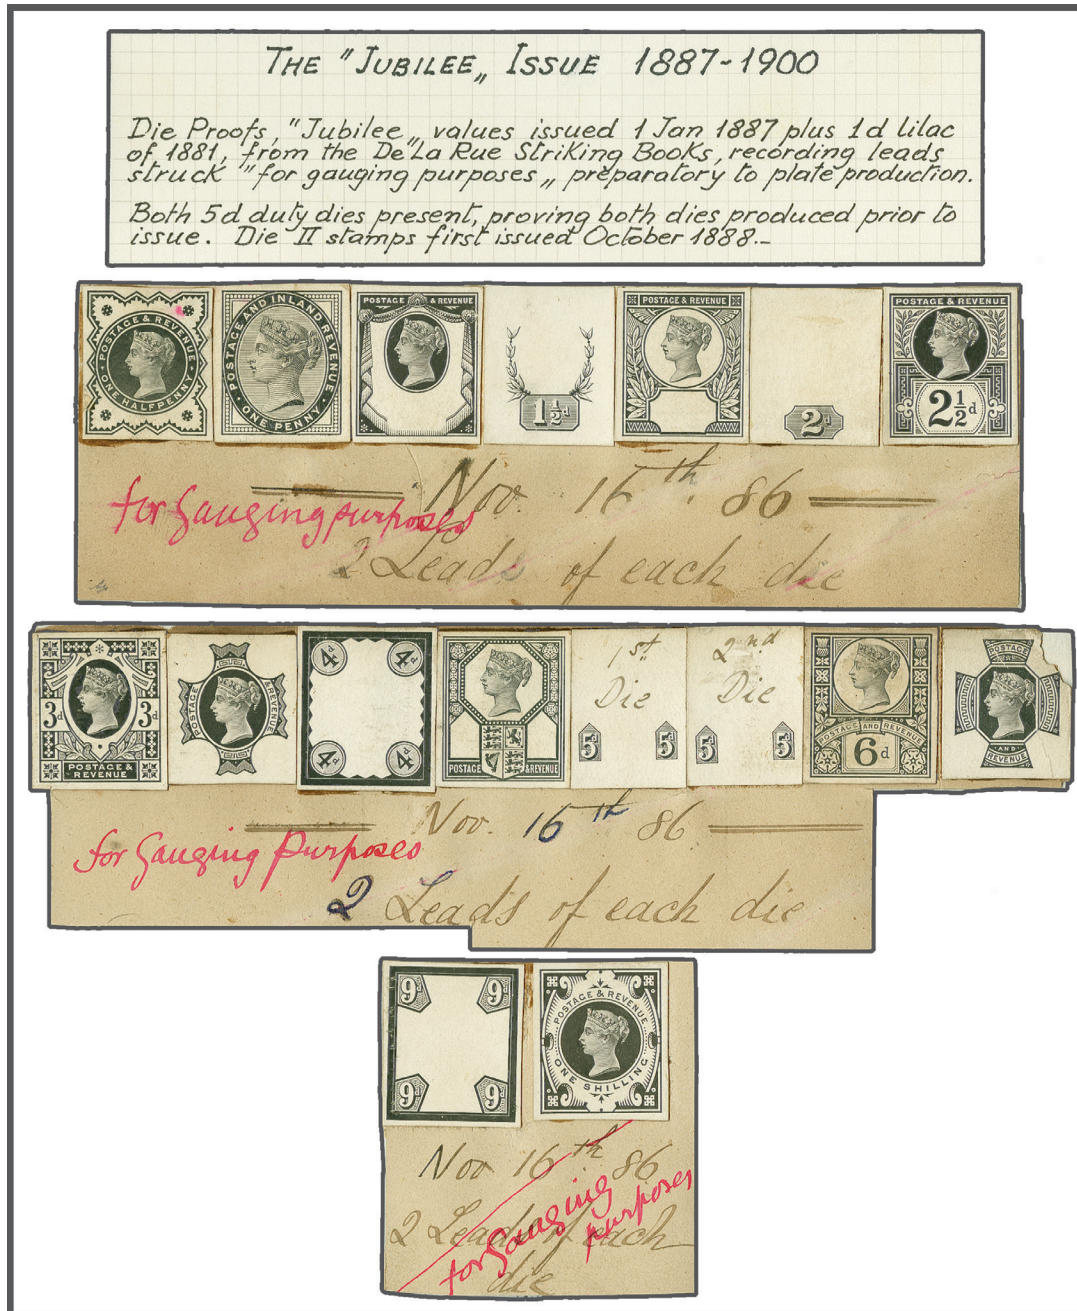 THE "JUBILEE„ ISSUE 1887-1900
Die Proofs, "Jubilee„ values issued 1 Jan 1887 plus 1d lilac
of 1881, from the De La Rue Striking Books, recording leads
struck "for gauging purposes„ preparatory to plate production.
Both 5d duty dies present, proving both dies produced prior to
issue. Die II stamps first issued October 1888.–
POSTAGE & REVENUE
ONE HALFPENNY
POSTAGE AND INLAND REVENUE
ONE PENNY
POSTAGE & REVENUE
1½d
POSTAGE & REVENUE
2d
POSTAGE & REVENUE
2½d
Nov. 16th 86
for Gauging purposes
2 Leads of each die
3d 3d
POSTAGE &
REVENUE
POSTAGE
& REVENUE
4d 4d
4d 4d
POSTAGE & REVENUE
1st
Die
5 5
2nd
Die
5 5
POSTAGE AND REVENUE
6d
POSTAGE
AND
REVENUE
Nov. 16th 86
for Gauging Purposes
2 Leads of each die
9d 9d
9d 9d
POSTAGE & REVENUE
ONE SHILLING
Nov 16th 86
for Gauging
purposes
2 Leads of each
die